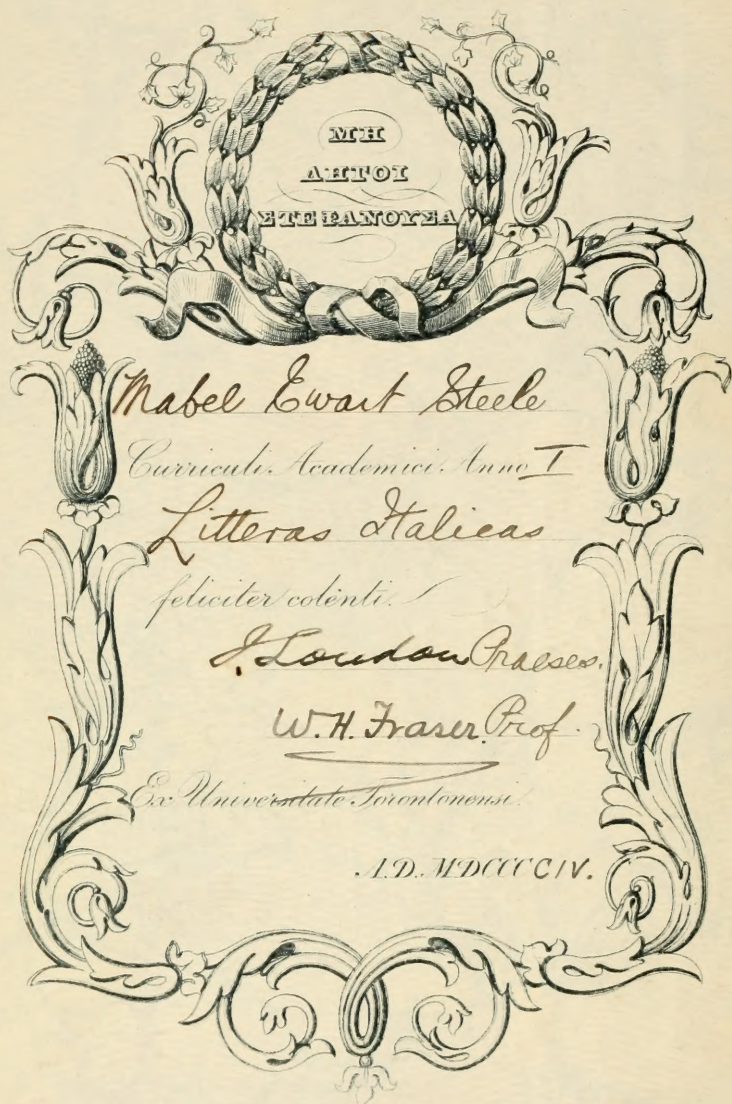 ΜΗ
ΛΗΓΟΙ
ΣΤΕΦΑΝΟΥΣΑ
Mabel Ewart Steele
Curriculi Academici Anno I
Litteras Italicas
feliciter colenti.
J. Loudon Praeses.
W. H. Fraser. Prof.
Ex Universitate Torontonensi.
A.D. MDCCCCIV.